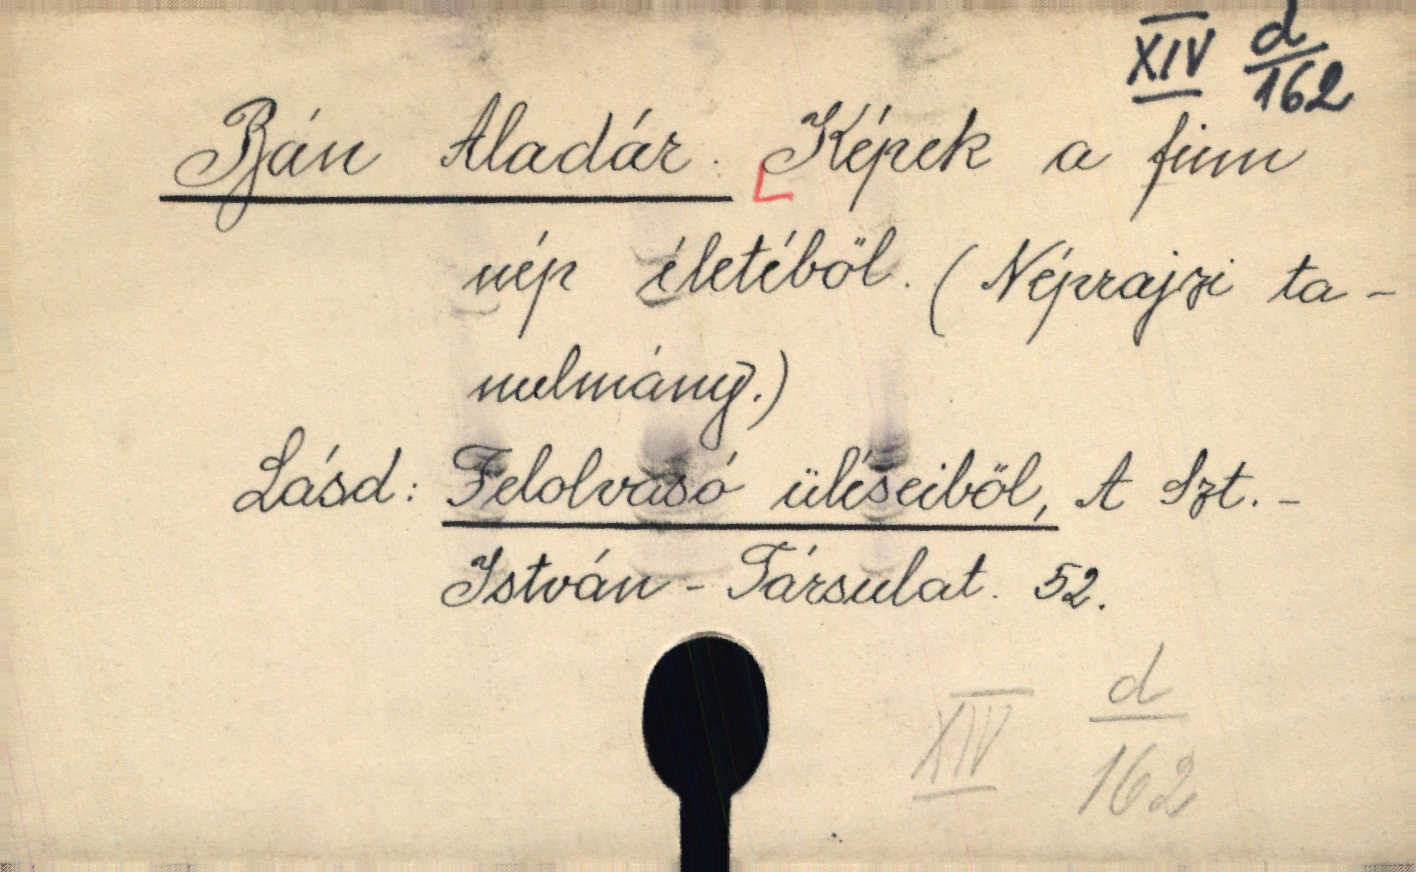 XIV d/162
Bán Aladár. Képek a finn
nép életéből. (Néprajzi ta-
nulmány.)
Lásd: Felolvasó üléseiből, A Szt.-
István-Társulat. 52.
XIV d/162